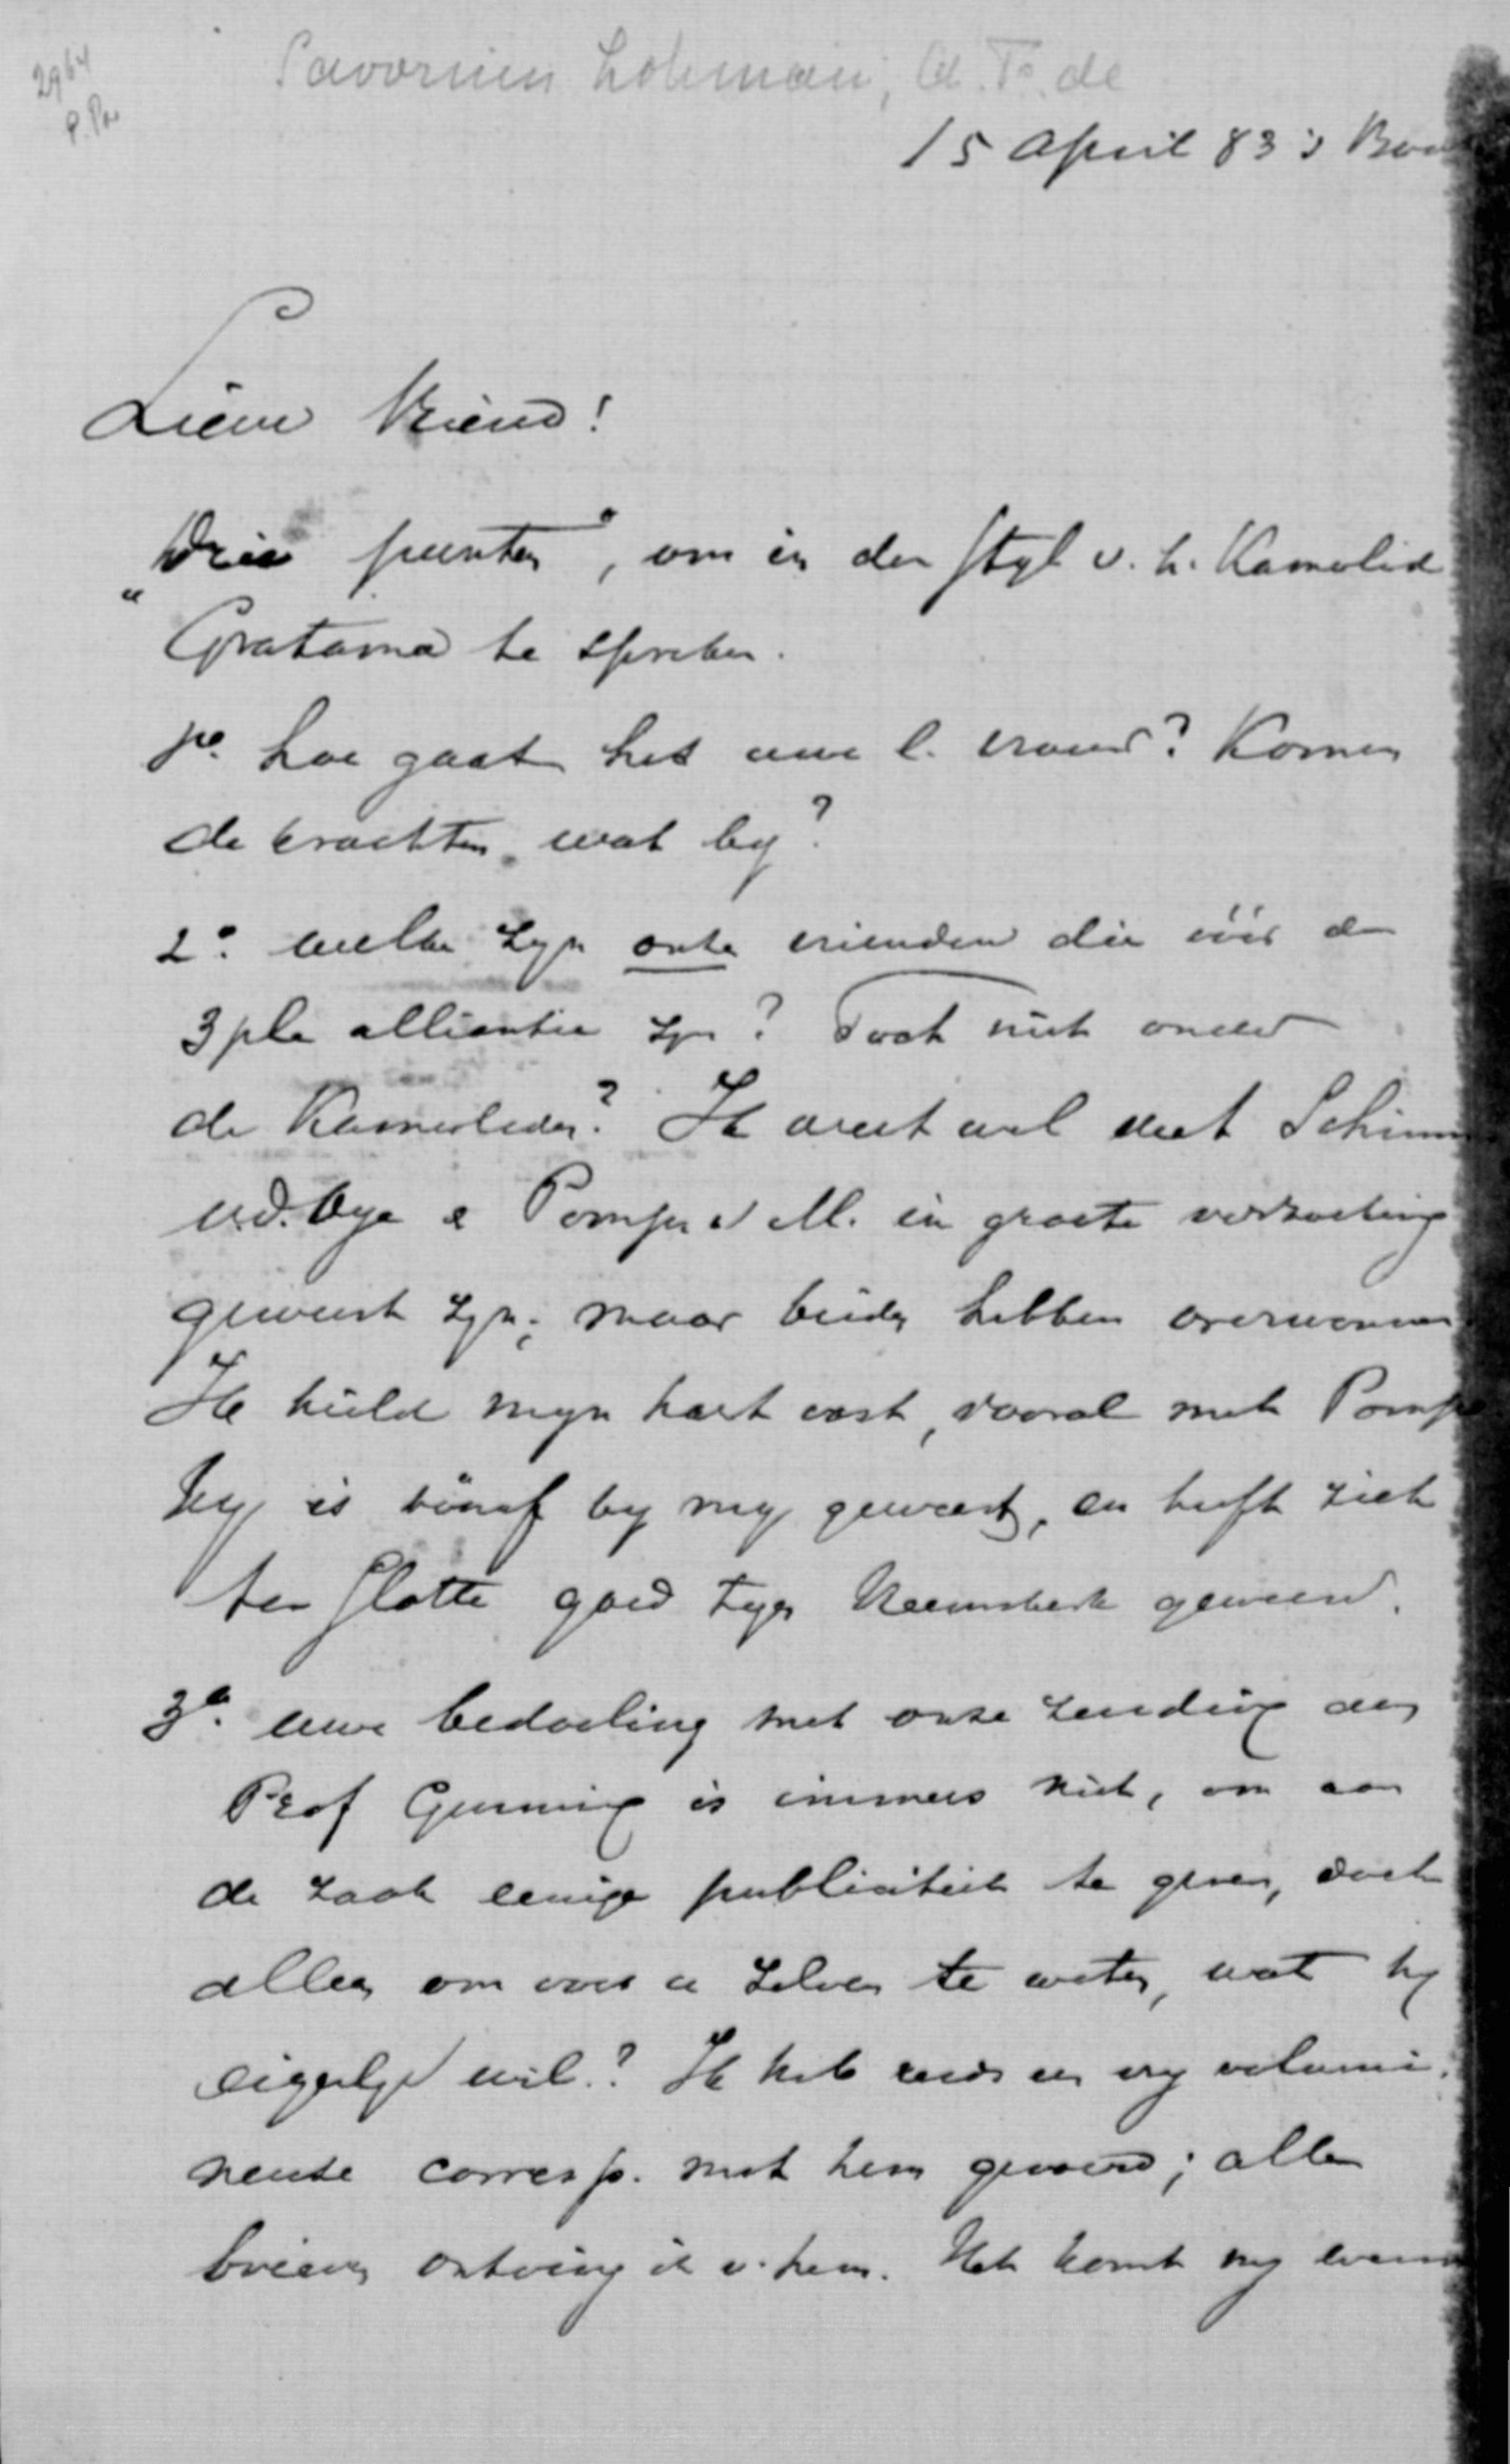 2964
P. Pa
Savornin Lohman, A. F. de
15 April 83 's Bos
Lieve Vriend!
"Drie punten", om in den styl v. h. Kamerlid
Gratama te spreken.
1º. hoe gaat het uwe l. vrouw? Komen
de krachten wat by?
2º. welke zyn onze vrienden die vóór de
3ple alliantie zyn? Toch niet onder
de Kamerleden? Ik weet wel dat Schimm
v.d. Oye & Pompe v M. in groote verzoeking
geweest zyn; maar beiden hebben overwonnen
Ik hield myn hart vast, vooral met Pompe
Hy is vooraf by my geweest, en heeft zich
ten slotte goed tegen Heemskerk geweerd.
3º. uwe bedoeling met onze zending aan
Prof Gunning is immers niet, om aan
de zaak eenige publiciteit te geven, doch
alleen om voor u zelven te weten, wat hy
eigenlyk wil? Ik heb reeds een vry volumi-
neuse corresp. met hem gevoerd; alle
brieven ontving ik v. hem. Het komt my